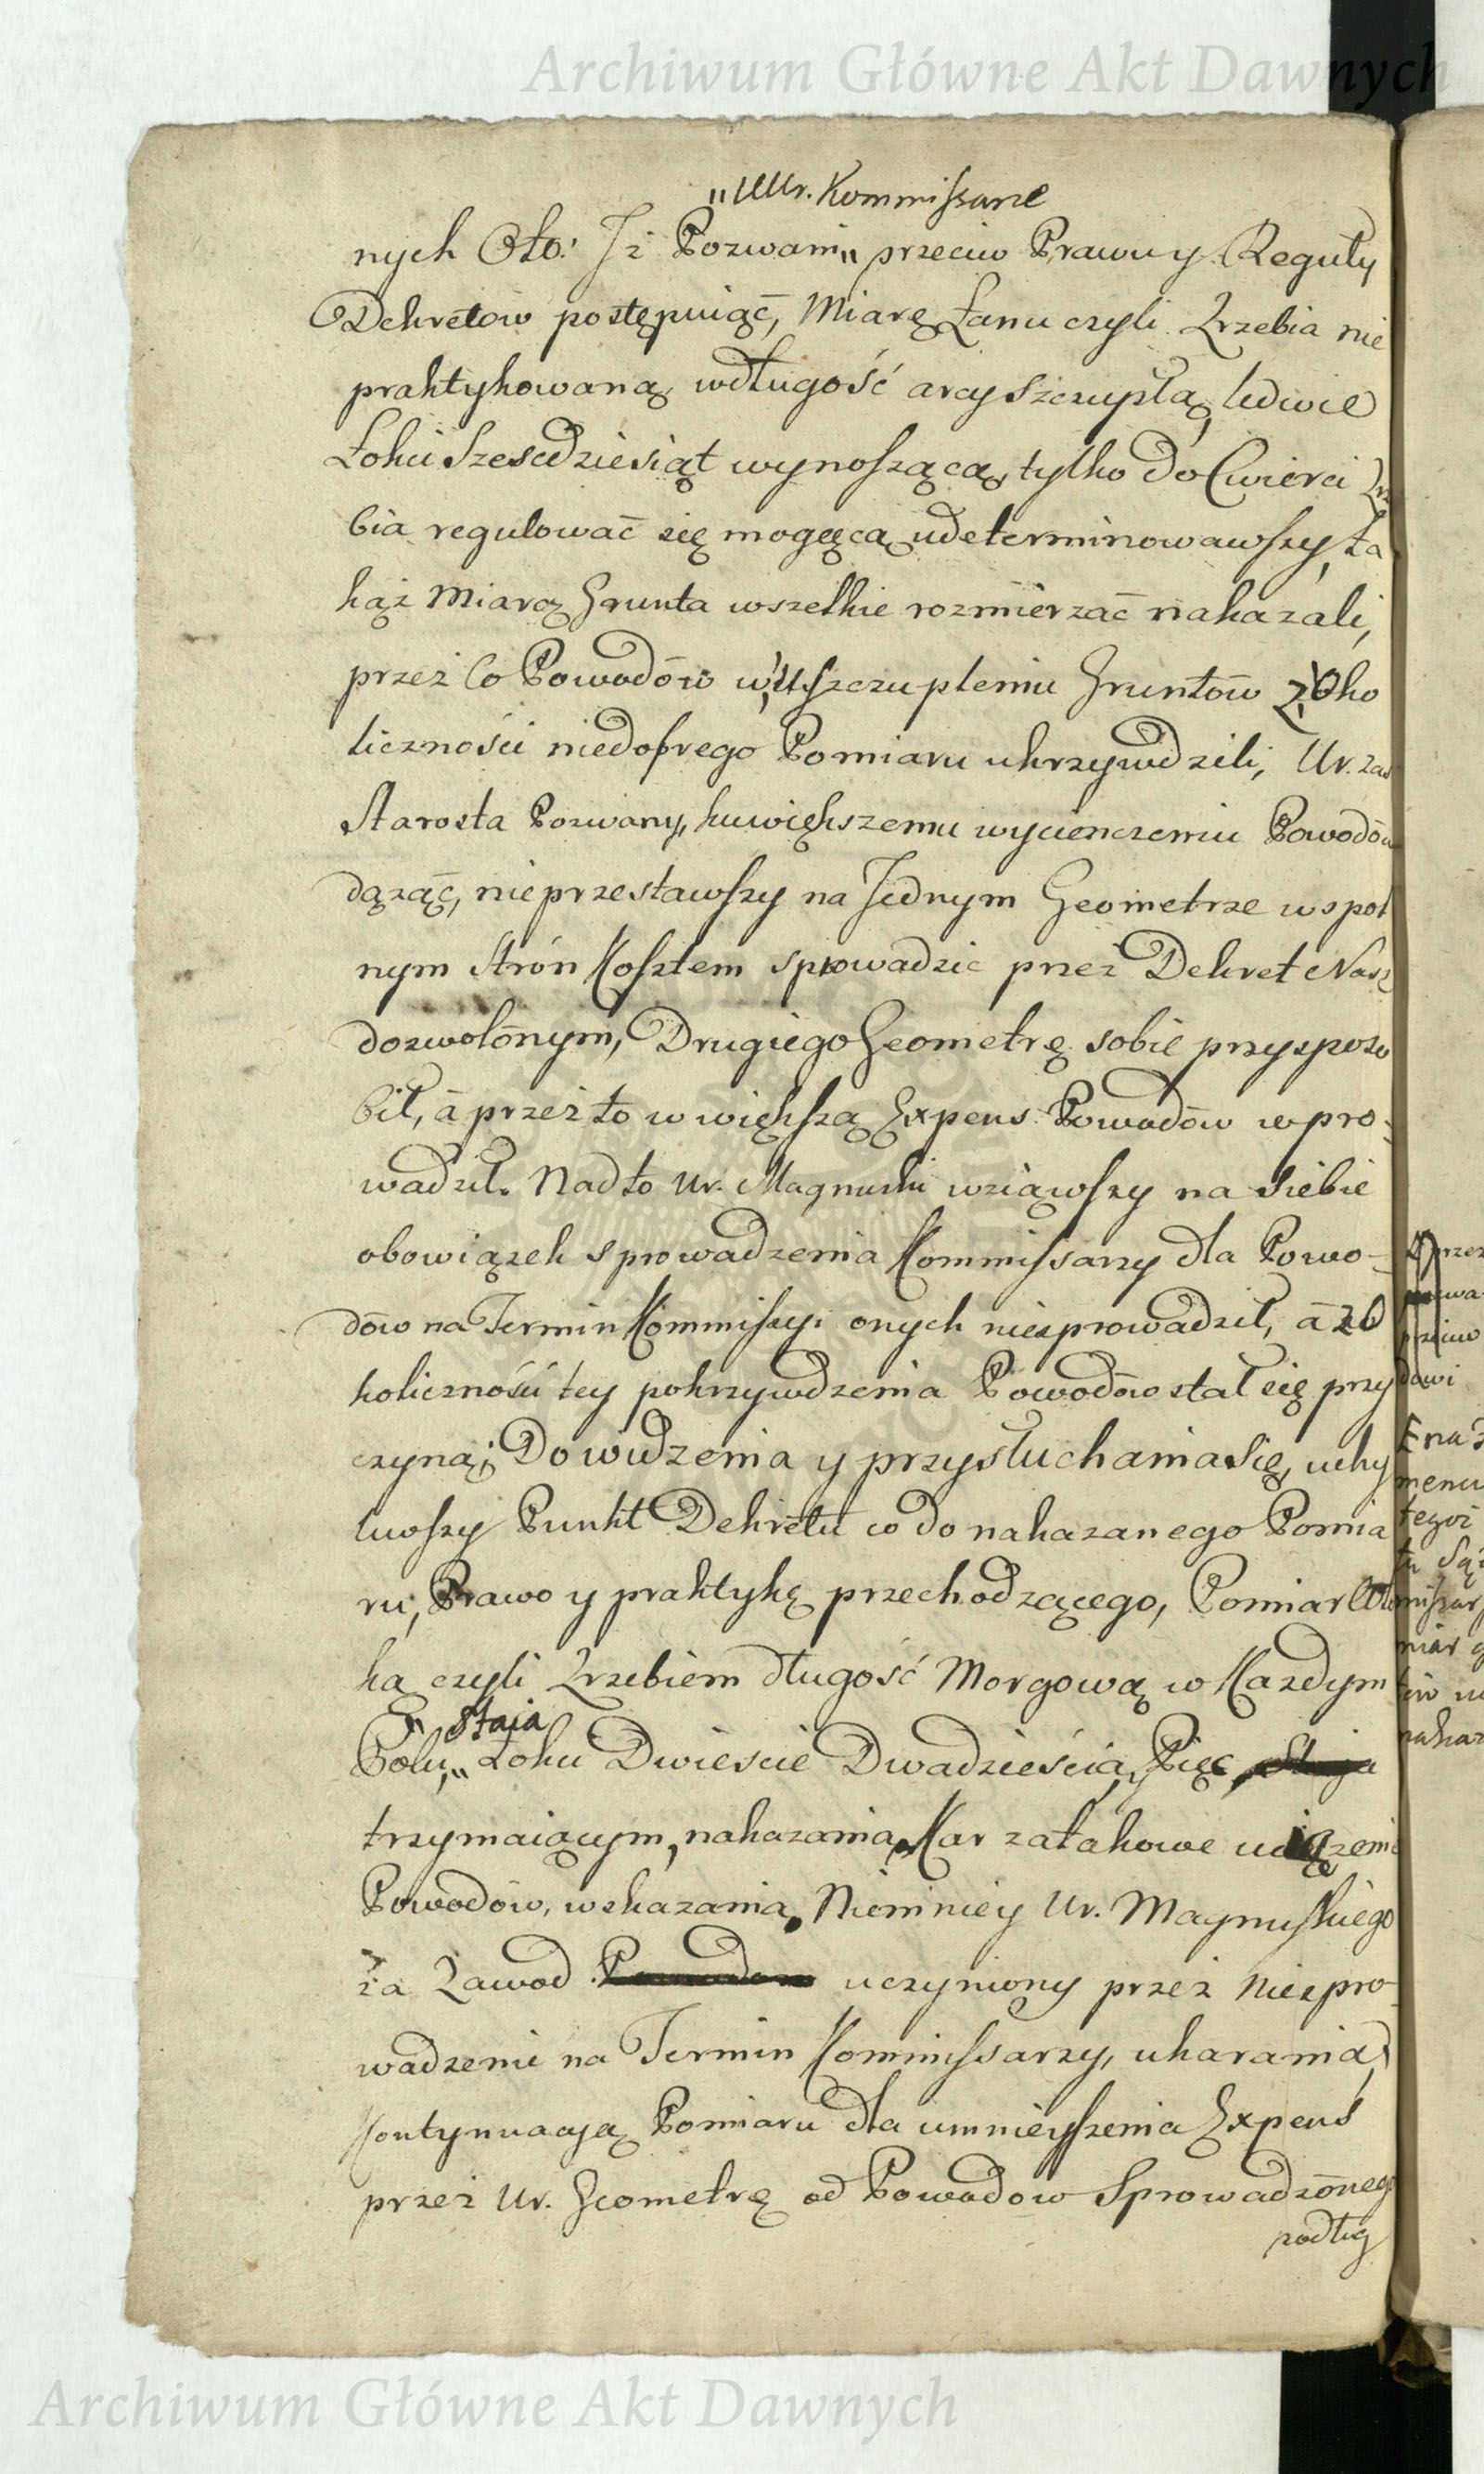 Archiwum Główne Akt Dawnych
„UUr. Kommissarze
nych Oto: Iż Pozwani„ przeciw Prawu y Reguły
Dekretow postępuiąc, Miarę Łanu czyli Zrzebia nie
praktykowaną wdługość arcy szczupłą, ledwie
Łokci Szescdziesiąt wynoszącą, tylko do Cwierci Zrze
bia regulować się mogącą udeterminowawszy, ta
kąż Miarą Grunta wszelkie rozmierzać nakazali,
przez Co Powodów w uszczupleniu Gruntów z Oko
liczności niedobrego Pomiaru ukrzywdzili, Ur. zaś
Starosta Pozwany, kuwiększemu wycienczeniu Powodów
dążąc, nieprzestawszy na Jednym Geometrze wspol
nym Strón Kosztem sprowadzic przez Dekret Nasz
dozwolónym, Drugiego Geometrę sobie przysposo
bił, á przez to w większą Expens Powodów wpro-
wadził. Nadto Ur. Magnuski wziąwszy na siebie
obowiązek sprowadzenia Kommissarzy dla Powo-
dów na Termin Kommissyi onych niesprowadził, á z O
koliczności tey pokrzywdzenia Powodów stał się przy
czyną; Do widzenia y przysłuchania się, uchy
liwszy Punkt Dekretu co do nakazanego Pomia
ru, Prawo y praktykę przechodzącego, Pomiar Włó
ką czyli Zrzebiem długość Morgową w Kazdym
„ Staia
Polu,„ Łokci Dwiescie Dwadzieścia Pięc, Staja
trzymaiącym, nakazania, Kar za takowe uciązenie
Powodów, wskazania, Niemniey Ur. Magnuskiego
za Zawod Powodom uczyniony przez Niespro-
wadzenie na Termin Kommissarzy, ukarania,
Kontynuacyą Pomiaru dla umnieyszenia Expens
przez Ur. Geometrę od Powodow Sprowadzónego
podług
Archiwum Główne Akt Dawnych